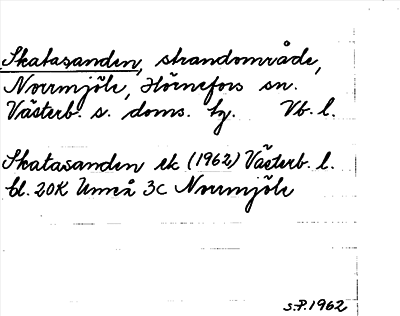 Skatasanden, strandområde,
Norrmjöle, Hörnefors sn.
Västerb. s. doms. hg. Vb. l.
Skatasanden ek (1962) Västerb. l.
bl. 20K Umeå 3C Norrmjöle
S.P. 1962